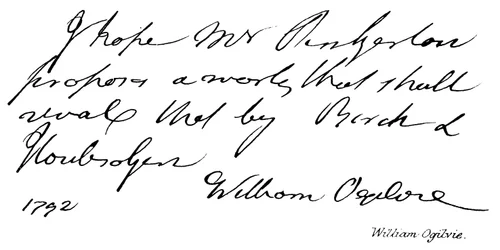 I hope Mr Pinkerton
proposes a work, that shall
rival that by Birch &
Houbraken
William Ogilvie
1792
William Ogilvie.